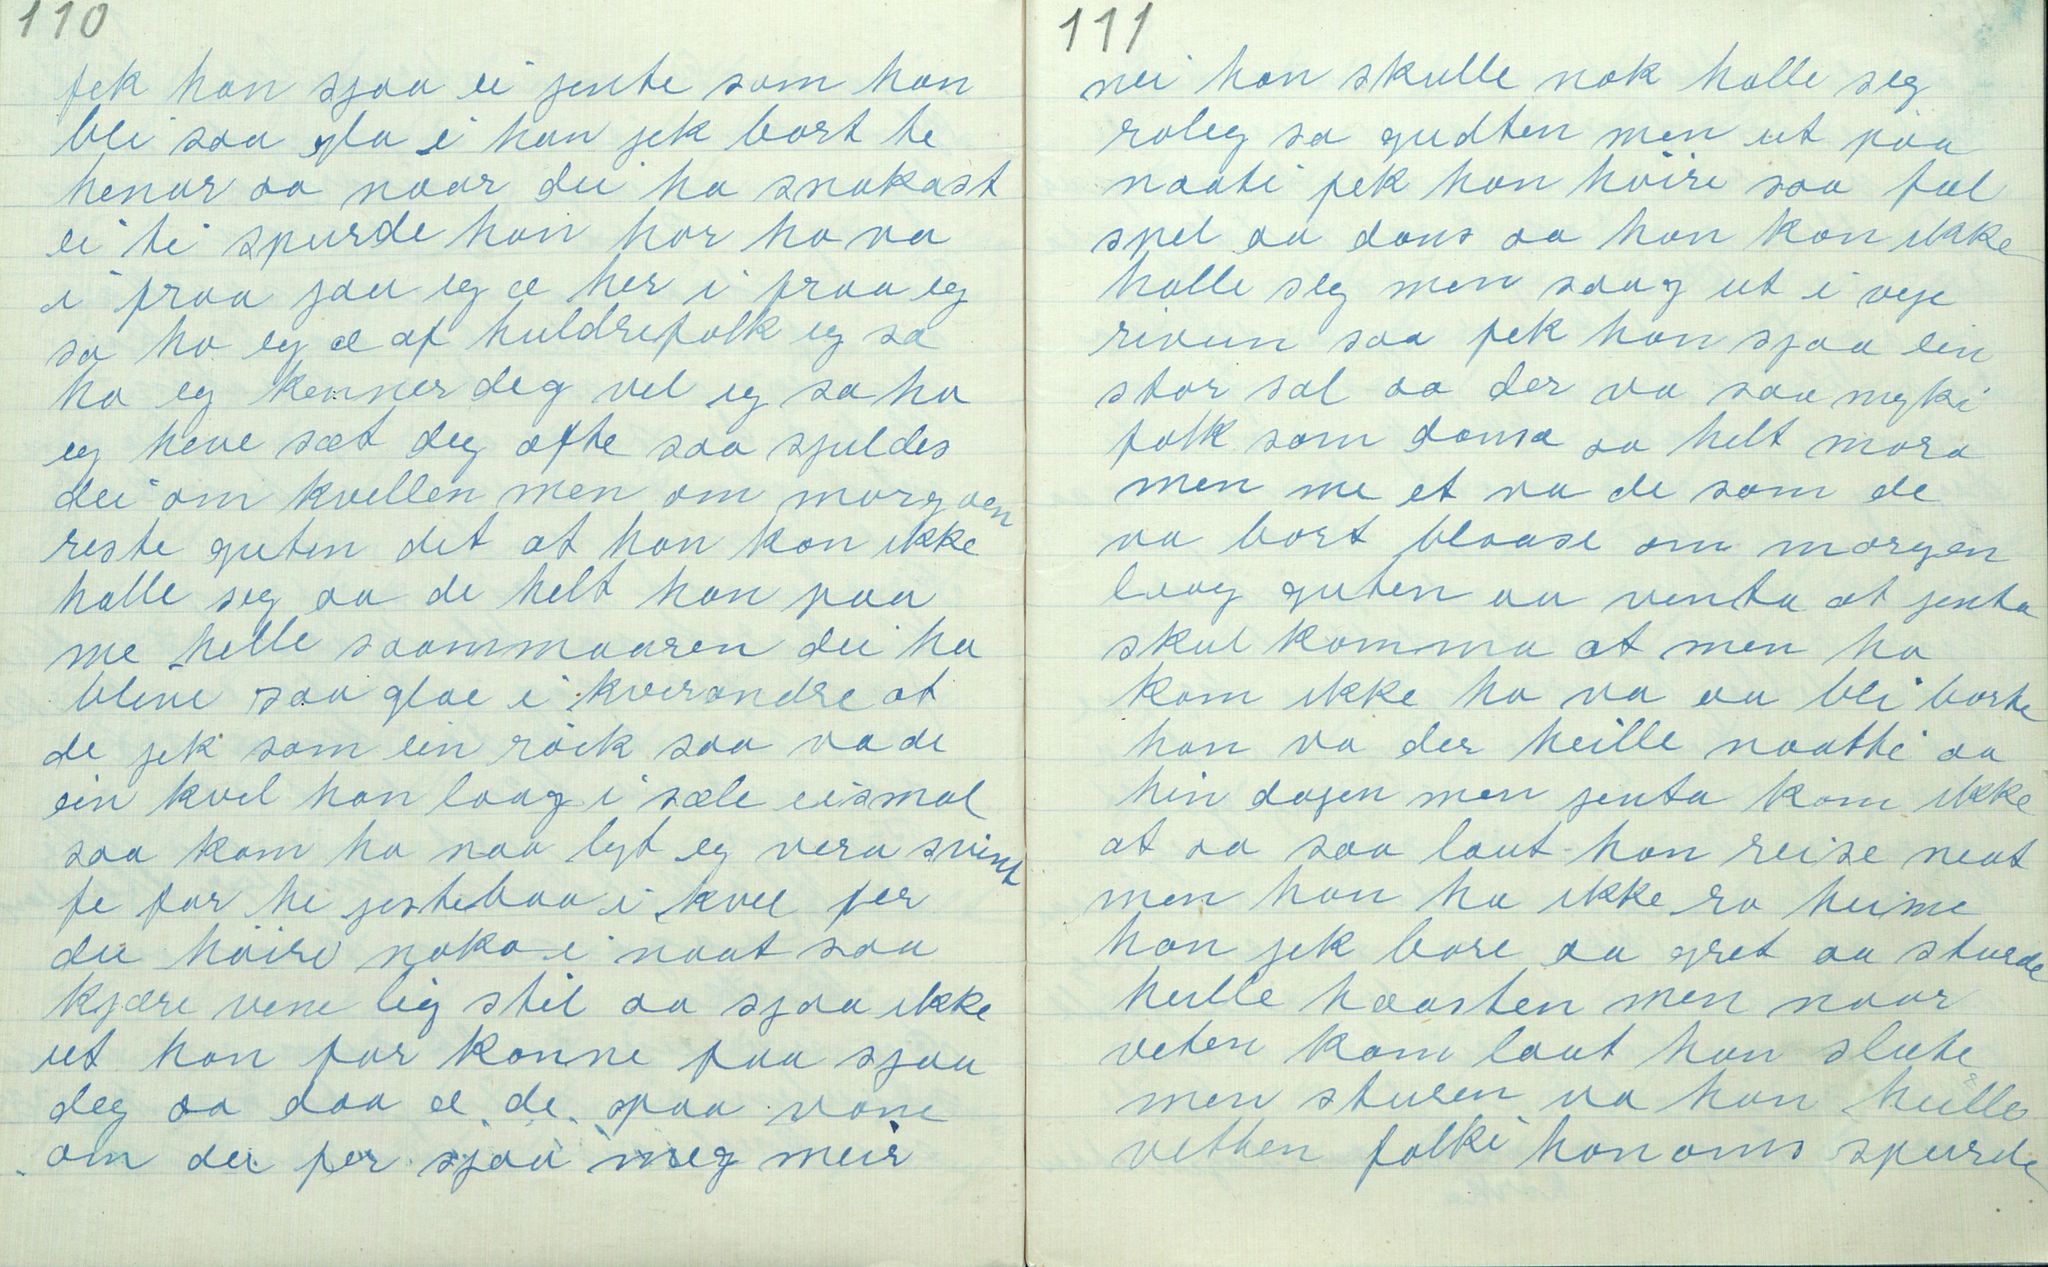 110
fek han sjaa ei jente som han
bli saa gla i han jek bort te
henar aa naar dei ha snakast
ei ti spurde han hor ho va
i fraa jau eg æ her i fraa eg
sa ho eg æ af huldrefolk eg sa
ho eg kenner deg vel eg sa ho
eg heve sæt deg ofte saa spildes
dei om kvellen men om morgoen
reste guten det at han kon ikke
halle seg aa de helt han paa
me helle saammaaren dei ha
blive saa glae i kverandre at
de jek som ein röik saa va de
ein kvel han laag i sæle eismal
saa kom ho naa lyt eg vera svint
fe far he jestebaa i kvel fer
du höire noko i naat saa
kjære vene lig stil aa sjaa ikke
ut han far konne faa sjaa
deg aa daa æ de spaa vone
om du fer sjaa meg meir
111
nei han skulle nok halle seg
roleg sa gudten men ut paa
naati fek han höire saa fæl
spel aa dans aa han kon ikke
halle seg men saag ut i veje
rivun saa fek han sjaa ein
stor sal aa der va saa myki
folk som dansa aa helt mora
men me et va de som de
va bort blaase om morgen
laag guten aa venta at jenta
skul komma at men ho
kom ikke ho va aa bli borte
han va der heille naatti aa
hin dagen men jenta kom ikke
at aa saa laut han reise neat
men han ha ikke ro heime
han jek bare aa gret aa sturde
heille haasten men naar
veten kom laut han slute
men sturen va han heille
vethen folki hanoms spurde